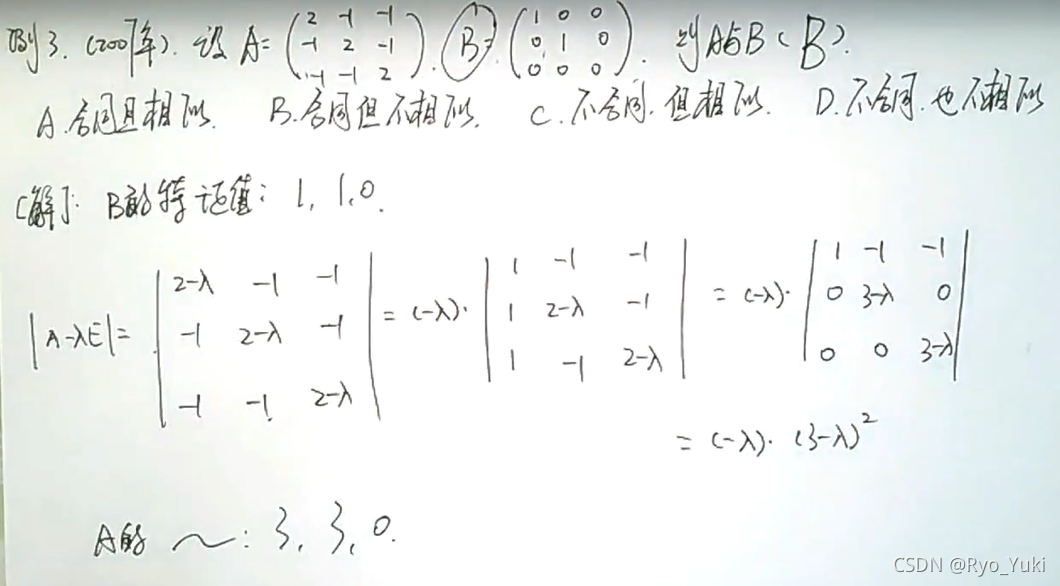 例3. (2007年). 设 A= (2 -1 -1 / -1 2 -1 / -1 -1 2). B= (1 0 0 / 0 1 0 / 0 0 0). 则A与B ( B ).
A. 合同且相似. B. 合同但不相似. C. 不合同. 但相似. D. 不合同. 也不相似
[解]: B的特征值: 1, 1, 0.
|A-λE|= |2-λ -1 -1 / -1 2-λ -1 / -1 -1 2-λ| = (-λ)· |1 -1 -1 / 1 2-λ -1 / 1 -1 2-λ| = (-λ)· |1 -1 -1 / 0 3-λ 0 / 0 0 3-λ|
= (-λ)· (3-λ)²
A的 ~: 3, 3, 0.
CSDN @Ryo_Yuki